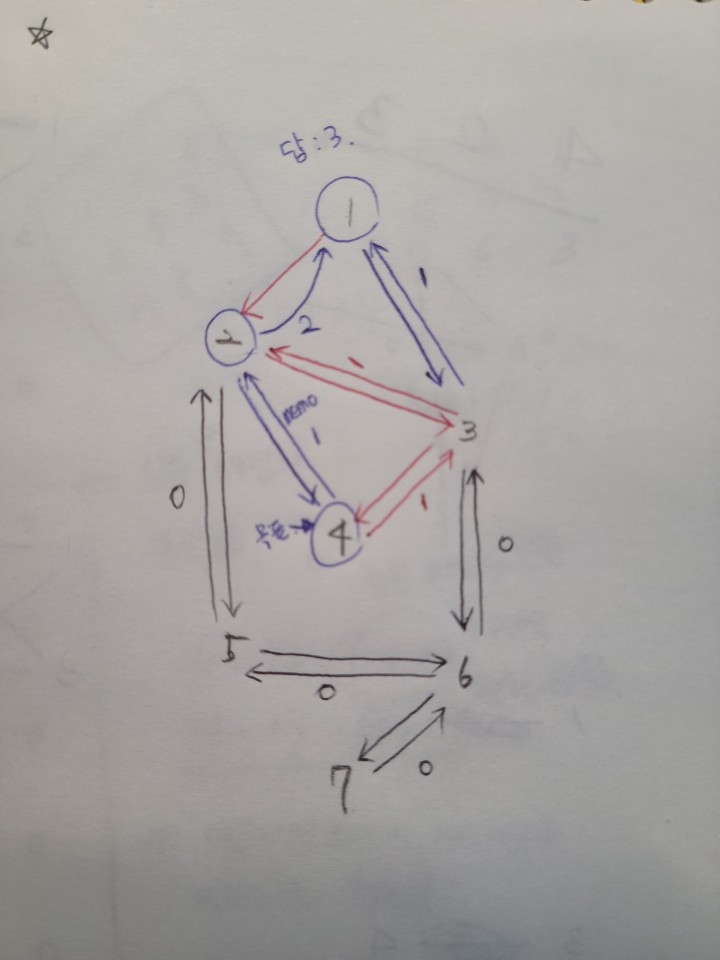 답:3.
1
1
2
2
1
memo
1
3
목표→
4
1
0
0
5
6
0
7
0